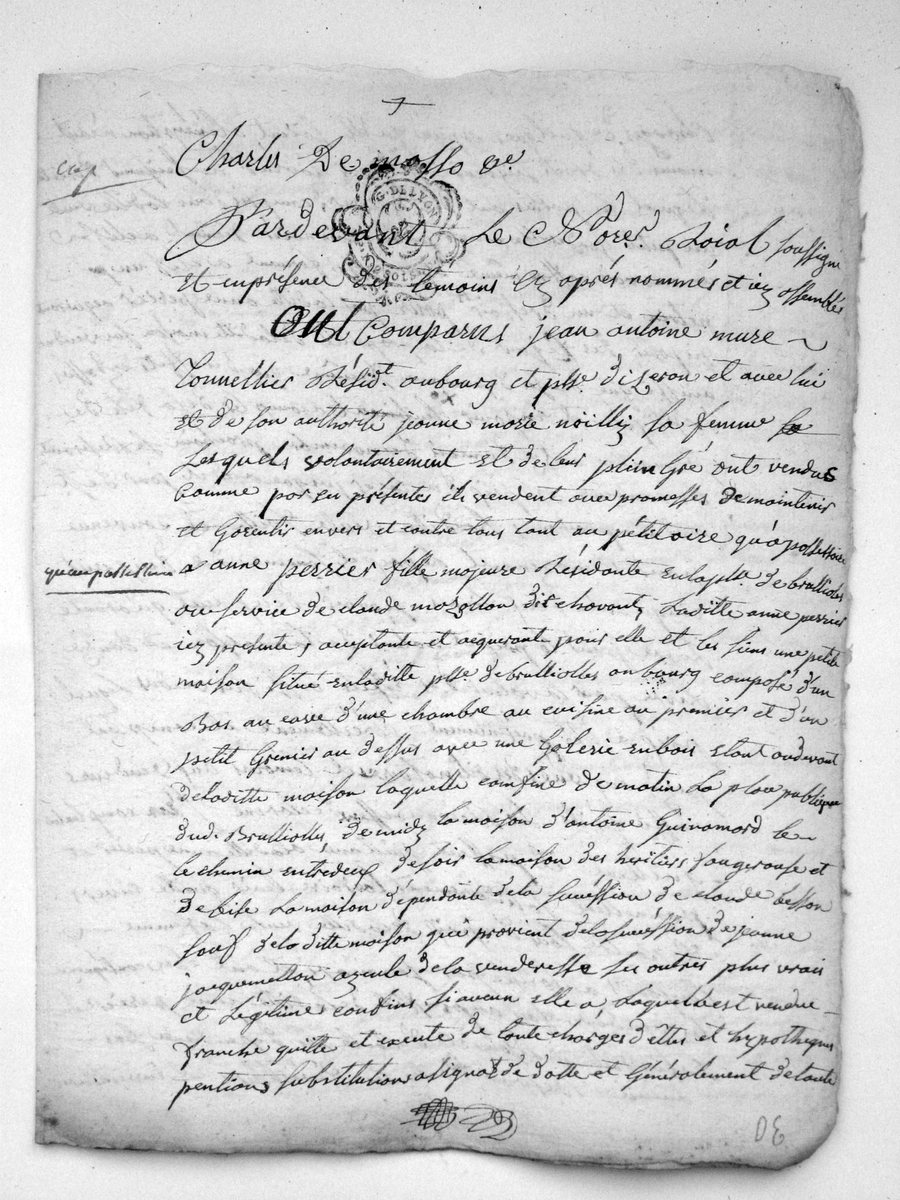 Charles De mosso De.
G. DE LYON
Pardevant Le Nore. Roial soussigné
Et enprésence des temoins cy aprés nommés et icy assemblés
Ont Comparus jean antoine mure
Tonnellier Résidt. aubourg et psse. dizeron et avec lui
Et de son authorité jeanne marie noilly sa femme
Lesquels volontairement Et de leur plein Gré ont vendus
Comme par ces présentes ils vendent avec promesses de maintenir
et Garentir envers et contre tous tant au pétitoire qu'a possessoire
qu'au possessoire
a anne perrier fille majeure Résidante enlapsse. de brulliolles
au service de claude mazallon dit chavant, Laditte anne perrier
icy présente, acceptante et acquerante pour elle et les siens une petite
maison situé enladitte psse. debrulliolles aubourg composé d'un
Bas au cave d'une chambre au cuisine au premier et d'un
petit Grenier au dessus avec une Galerie enbois Etant audevant
deladitte maison laquelle confine de matin La place publique
dud. Brulliolles, de midy la maison d'antoine Guinamard le
le chemin entredeux de soir la maison des heritiers fougerouse et
de bise La maison dependante dela succéssion de claude besson
sauf dela ditte maison qui provient delasuccéssion de jeanne
jacquemetton ayeule dela venderesse ses autres plus vrais
et Légitime confins si aucun elle a, Laquelle est vendue
franche quitte et exente de toute charges d'ettes et hypotheques
pentions substitutions assignat de dotte et Généralement detoute
DE